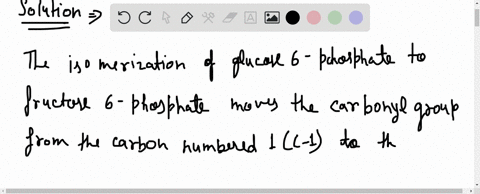 Solution ⇒
The isomerization of glucose 6-phosphate to
fructose 6-phosphate moves the carbonyl group
from the carbon numbered 1 (C-1) to th